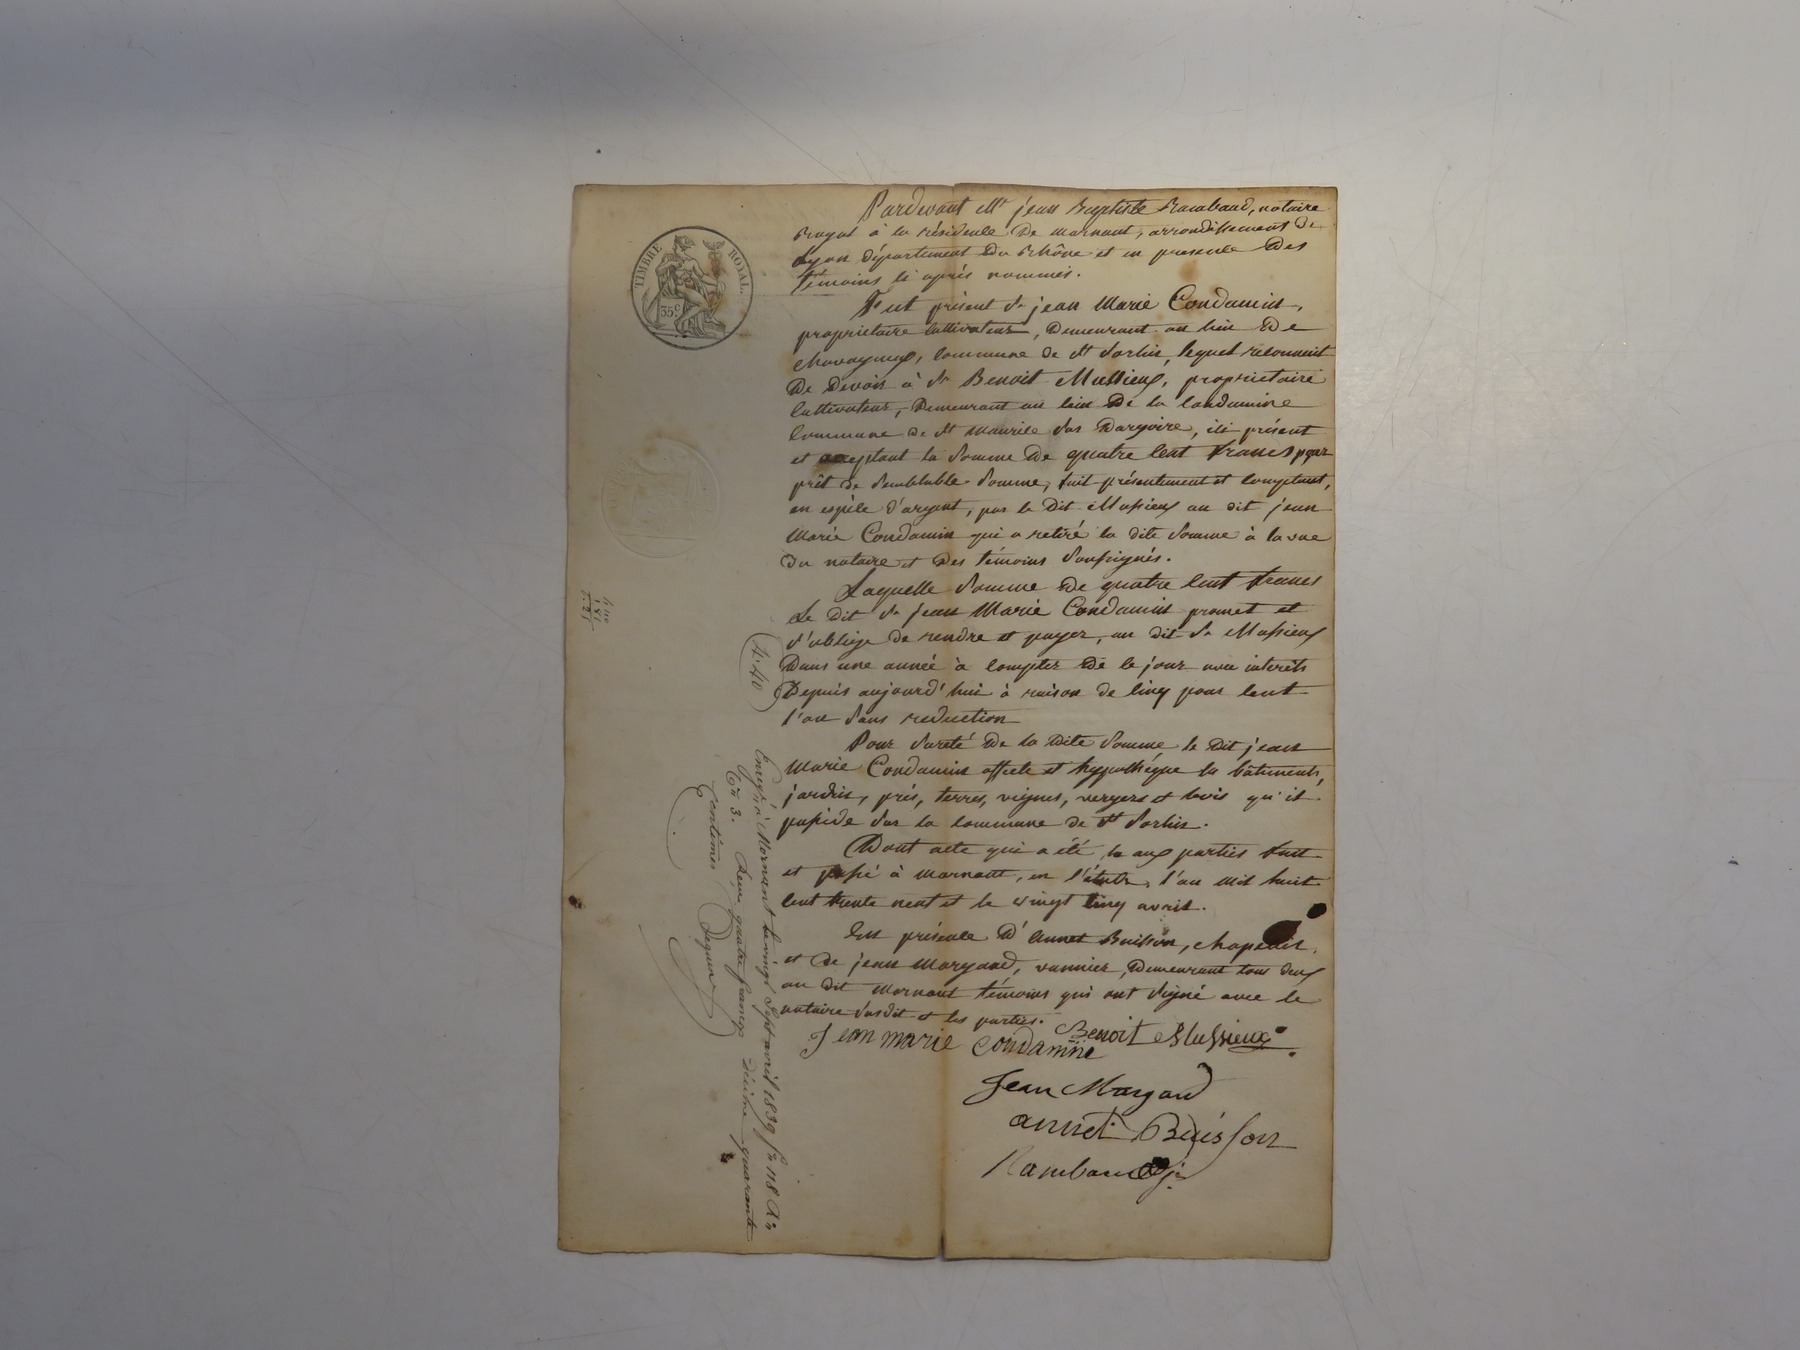 TIMBRE ROYAL.
35 c
Pardevant Mtre jean Baptiste Rambaud, notaire
Royal à la résidence de mornant, arrondissement de
Lyon département du Rhône et en presence des
témoins ci après nommés.
Fut présent Sr jean Marie Condamin,
proprietaire cultivateur, demeurant au lieu de
chavagneux, commune de St Sorlin, lequel reconnait
de devoir à Sr Benoit Mussieux, proprietaire
cultivateur, demeurant au lieu de la condamine
commune de St Maurice sur Dargoire, ici présent
et acceptant la somme de quatre cent francs pour
prêt de semblable somme, fait présentement et comptant,
en espèce d'argent, par le dit Mussieux au dit jean
Marie Condamin qui a retiré la dite somme à la vue
du notaire et des témoins soussignés.
Laquelle somme de quatre cent francs
le dit Sr jean Marie Condamin promet et
s'oblige de rendre et payer, au dit Sr Mussieux
dans une année à compter de ce jour avec interêts
depuis aujourd'hui à raison de cinq pour cent
l'an sans reduction
Pour sureté de la dite somme le dit jean
Marie Condamin affecte et hypothéque les bâtiments,
jardin, prés, terres, vignes, vergers et bois qu'il
possède sur la commune de St Sorlin.
Dont acte qui a été lu aux parties fait
et passé à mornant, en l'étude, l'an mil huit
cent trente neuf et le vingt cinq avril.
En présence d'Annet Buisson, chapelier,
et de jean Margand, vannier, demeurant tous deux
au dit mornant témoins qui ont signé avec le
notaire susdit et les parties.
Jean marie condamine
Benoit Mussieux
Jean Margand
annet Buisson
Rambaud
4.40
Enregré à Mornant le vingt sept avril 1839 fo 118 Ro
Cse 3. Reçu quatre francs décime quarante
centimes